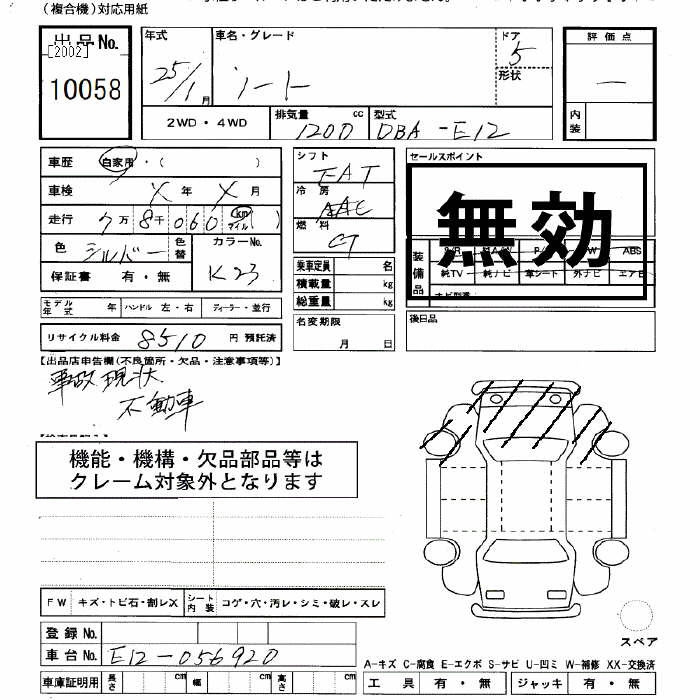 (複合機)対応用紙
出品No.
[2002]
10058
年式
25/1月
車名・グレード
ノート
ドア
5
形状
評価点
—
内装
2WD・4WD
排気量 1200 cc
型式 DBA-E12
車歴 自家用・( )
車検 X年 X月
走行 7万8千060 km マイル ( )
色 シルバー 色替
カラーNo. K23
保証書 有・無
モデル年式 年 ハンドル 左・右 ディーラー・並行
リサイクル料金 8510 円 預託済
シフト FAT
冷房 AAC
燃料
乗車定員 名
積載量 kg
総重量 kg
名変期限 月 日
セールスポイント
無効
装備品 ABS
純TV 純ナビ 革シート 外ナビ エアB
後日品
【出品店申告欄(不良箇所・欠品・注意事項等)】
事故現状
不動車
機能・機構・欠品部品等は
クレーム対象外となります
FW キズ・トビ石・割レX シート内装 コゲ・穴・汚レ・シミ・破レ・スレ
登録No.
車台No. E12-056920
車庫証明用 長さ cm 幅 cm 高さ cm
スペア
A-キズ C-腐食 E-エクボ S-サビ U-凹ミ W-補修 XX-交換済
工具 有・無 ジャッキ 有・無